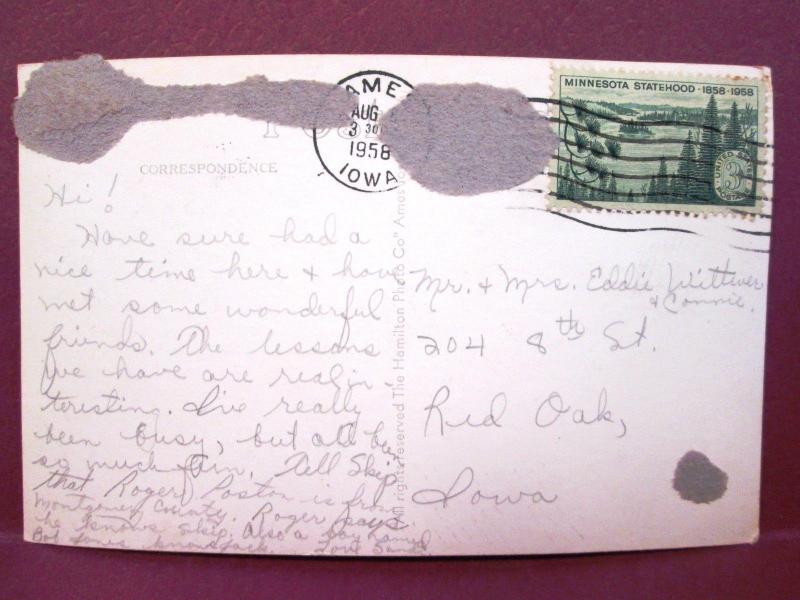 MINNESOTA STATEHOOD · 1858-1958
UNITED STATES
3¢
POSTAGE
AME
AUG
3 30
1958
IOWA
CORRESPONDENCE
Hi!
Have sure had a
nice time here + have
met some wonderful
friends. The lessons
we have are real in-
teresting. I've really
been busy, but all been
so much fun. Tell Skip
that Roger Poston is from
Montgomery County. Roger says
he knows Skip. Also a boy named
Bob Jones knows Jack. Love
All rights reserved The Hamilton Photo Co" Ames Io
Mr. + Mrs. Eddie Wittwer
+ Connie.
204 8th St.
Red Oak,
Iowa